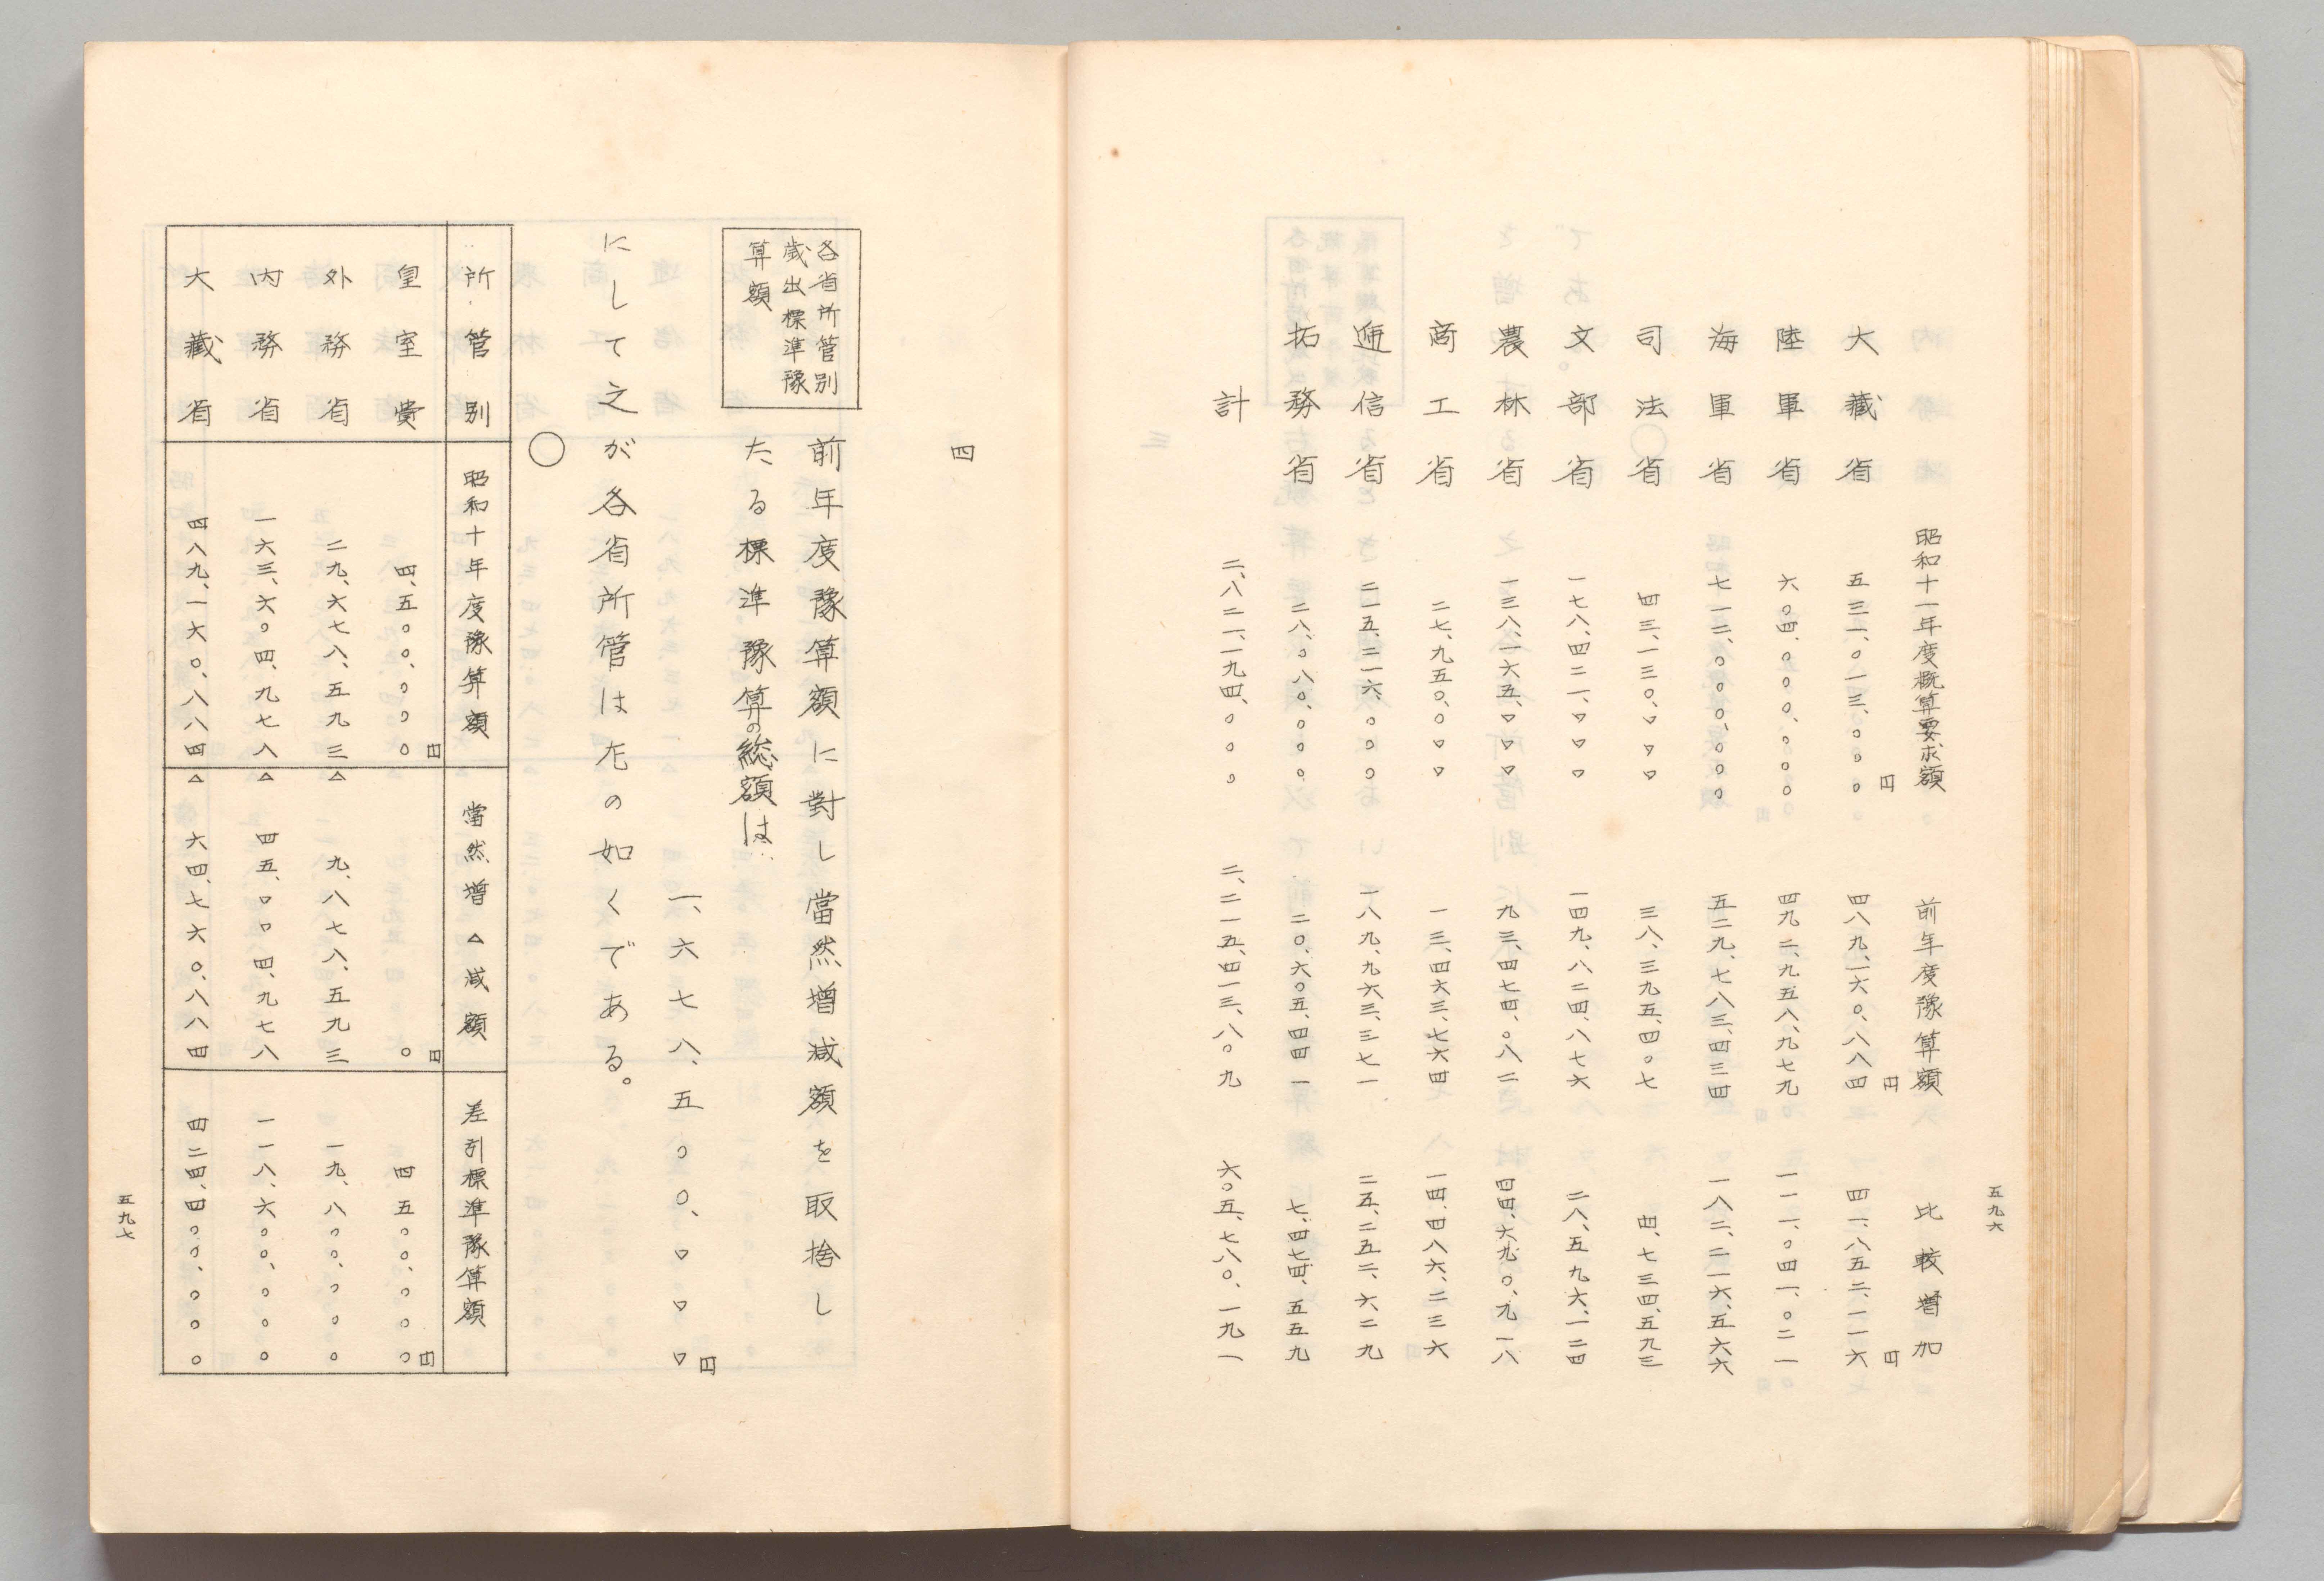 五九六
昭和十一年度概算要求額　前年度豫算額　比較増加
円　円　円
大藏省　五三一、〇一三、〇〇〇　四八九、一六〇、八八四　四一、八五二、一一六
陸軍省　六〇四、〇〇〇、〇〇〇　四九二、九五八、九七九　一一一、〇四一、〇二一
海軍省　七一二、〇〇〇、〇〇〇　五二九、七八三、四三四　一八二、二一六、五六六
司法省　四三、一三〇、〇〇〇　三八、三九五、四〇七　四、七三四、五九三
文部省　一七八、四二一、〇〇〇　一四九、八二四、八七六　二八、五九六、一二四
農林省　一三八、一六五、〇〇〇　九三、四七四、〇八二　四四、六九〇、九一八
商工省　二七、九五〇、〇〇〇　一三、四六三、七六四　一四、四八六、二三六
逓信省　二一五、二一六、〇〇〇　一八九、九六三、三七一　二五、二五二、六二九
拓務省　二八、〇八〇、〇〇〇　二〇、六〇五、四四一　七、四七四、五五九
計　二、八二一、一九四、〇〇〇　二、二一五、四一三、八〇九　六〇五、七八〇、一九一
四
各省所管別
歳出標準豫
算額
前年度豫算額に對し當然増減額を取捨し
たる標準豫算の総額は
一、六七八、五〇〇、〇〇〇円
にして之が各省所管は左の如くである。
〇
所管別　昭和十年度豫算額　當然増△減額　差引標準豫算額
円　円　円
皇室費　四、五〇〇、〇〇〇　〇　四五〇〇、〇〇〇
外務省　二九、六七八、五九三　△　九、八七八、五九三　一九、八〇〇、〇〇〇
内務省　一六三、六〇四、九七八　△　四五、〇〇四、九七八　一一八、六〇〇、〇〇〇
大藏省　四八九、一六〇、八八四　△　六四、七六〇、八八四　四二四、四〇〇、〇〇〇
五九七